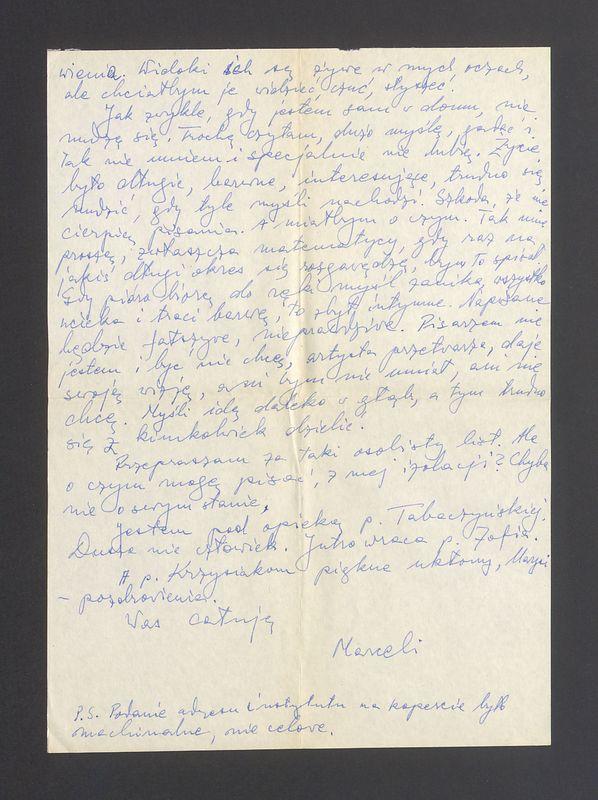 wienia. Widoki ich są żywe w mych oczach,
ale chciałbym je widzieć, czuć, słyszeć.
Jak zwykle, gdy jestem sam w domu, nie
nudzę się. Trochę czytam, dużo myślę, gadać i
tak nie umiem i specjalnie nie lubię. Życie
było długie, barwne, interesujące, trudno się
nudzić, gdy tyle myśli nachodzi. Szkoda, że nie
cierpię pisania. A miałbym o czym. Tak mnie
proszą, zwłaszcza matematycy, gdy raz na
jakiś długi okres się rozgawędzę, bym to spisał.
Gdy pióro biorę do ręki myśl zanika, wszystko
ucieka i traci barwę, to zbyt intymne. Napisane
będzie fałszywe, nieprawdziwe. Pisarzem nie
jestem i być nie chcę, artysta przetwarza, daje
swoją wizję, a ja bym nie umiał, ani nie
chcę. Myśli idą daleko w głąb, a tym trudno
się z kimkolwiek dzielić.
Przepraszam za taki osobisty list. Ale
o czym mogę pisać, z mej izolacji? Chyba
nie o swym stanie.
Jestem pod opieką p. Tabaczyńskiej.
Dusza nie człowiek. Jutro wraca p. Zofia.
A p. Krzysiakom piękne ukłony, Marysi
– pozdrowienia.
Was całuję
Marceli
P.S. Podanie adresu instytutu na kopercie było
machinalne, nie celowe.